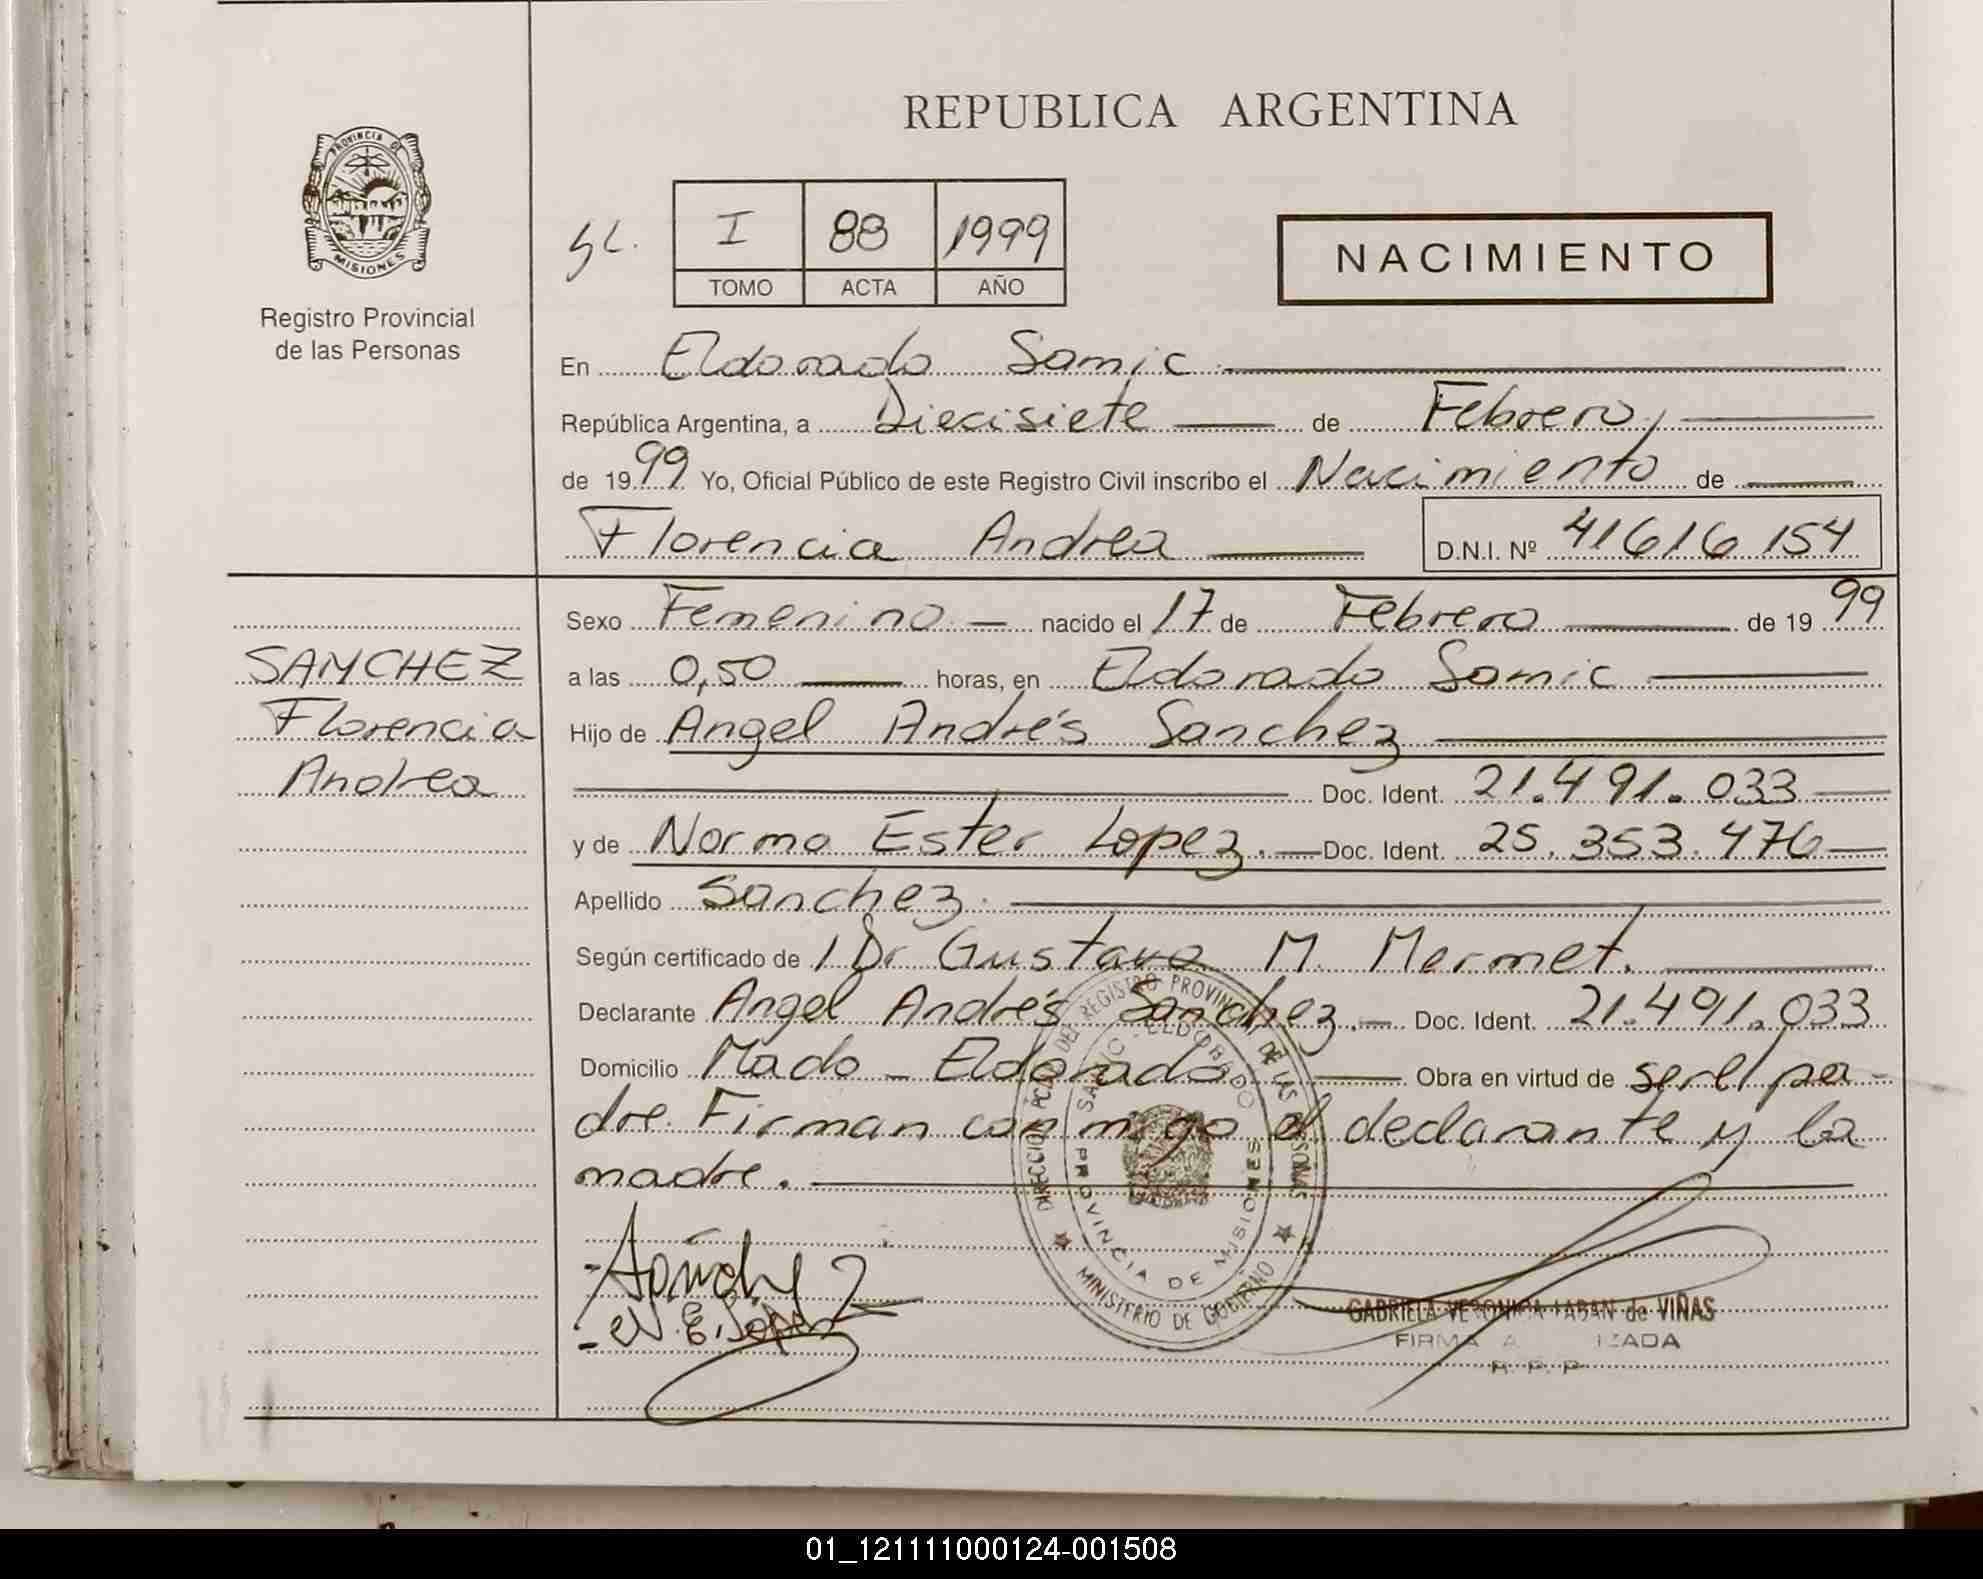 REPUBLICA ARGENTINA
PROVINCIA DE
MISIONES
Registro Provincial
de las Personas
I 88 1999
TOMO ACTA AÑO
NACIMIENTO
En Eldorado Samic
República Argentina, a Diecisiete de Febrero,
de 1999 Yo, Oficial Público de este Registro Civil inscribo el Nacimiento de
Florencia Andrea D.N.I. Nº 41616154
SANCHEZ
Florencia
Andrea
Sexo Femenino nacido el 17 de Febrero de 1999
a las 0,50 horas, en Eldorado Samic
Hijo de Angel Andrés Sanchez
Doc. Ident. 21.491.033
y de Norma Ester Lopez. Doc. Ident. 25.353.476
Apellido Sanchez.
Según certificado de 1 Dr Gustavo M. Mermet.
Declarante Angel Andrés Sanchez. Doc. Ident. 21.491.033
Domicilio Mado - Eldorado Obra en virtud de ser el pa-
dre. Firman conmigo el declarante y la
madre.
DIRECCION PCIAL DEL REGISTRO PROVINCIAL DE LAS PERSONAS
SAMIC - ELDORADO
PROVINCIA DE MISIONES
MINISTERIO DE GOBIERNO
N.E. Lopez
GABRIELA VERONICA LABAN de VIÑAS
FIRMA A IZADA
R.P.P
01_121111000124-001508